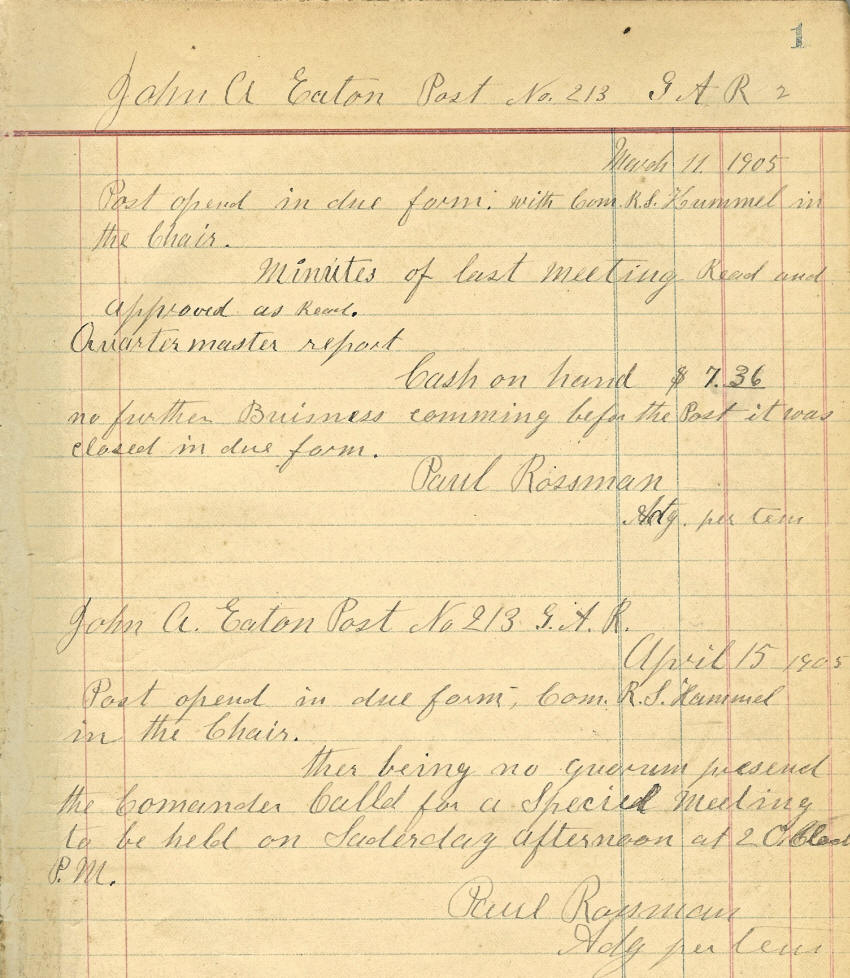 1
John A Eaton Post No. 213 G A R 2
March 11. 1905
Post opend in due form. with Com. R.S. Hummel in
the Chair.
Minutes of last meeting Read and
approved as Read.
Quartermaster report
Cash on hand $ 7.36
no further Buisness comming befor the Post it was
closed in due form.
Paul Rossman
Adg. per tem
John A. Eaton Post No 213 G. A. R.
April 15 1905
Post opend in due form, Com. R.S. Hummel
in the Chair.
ther being no quorum presend
the Comander Calld for a Speciel Meeting
to be held on Saderday afternoon at 2 O Clock
P.M.
Paul Rossman
Adg per tem